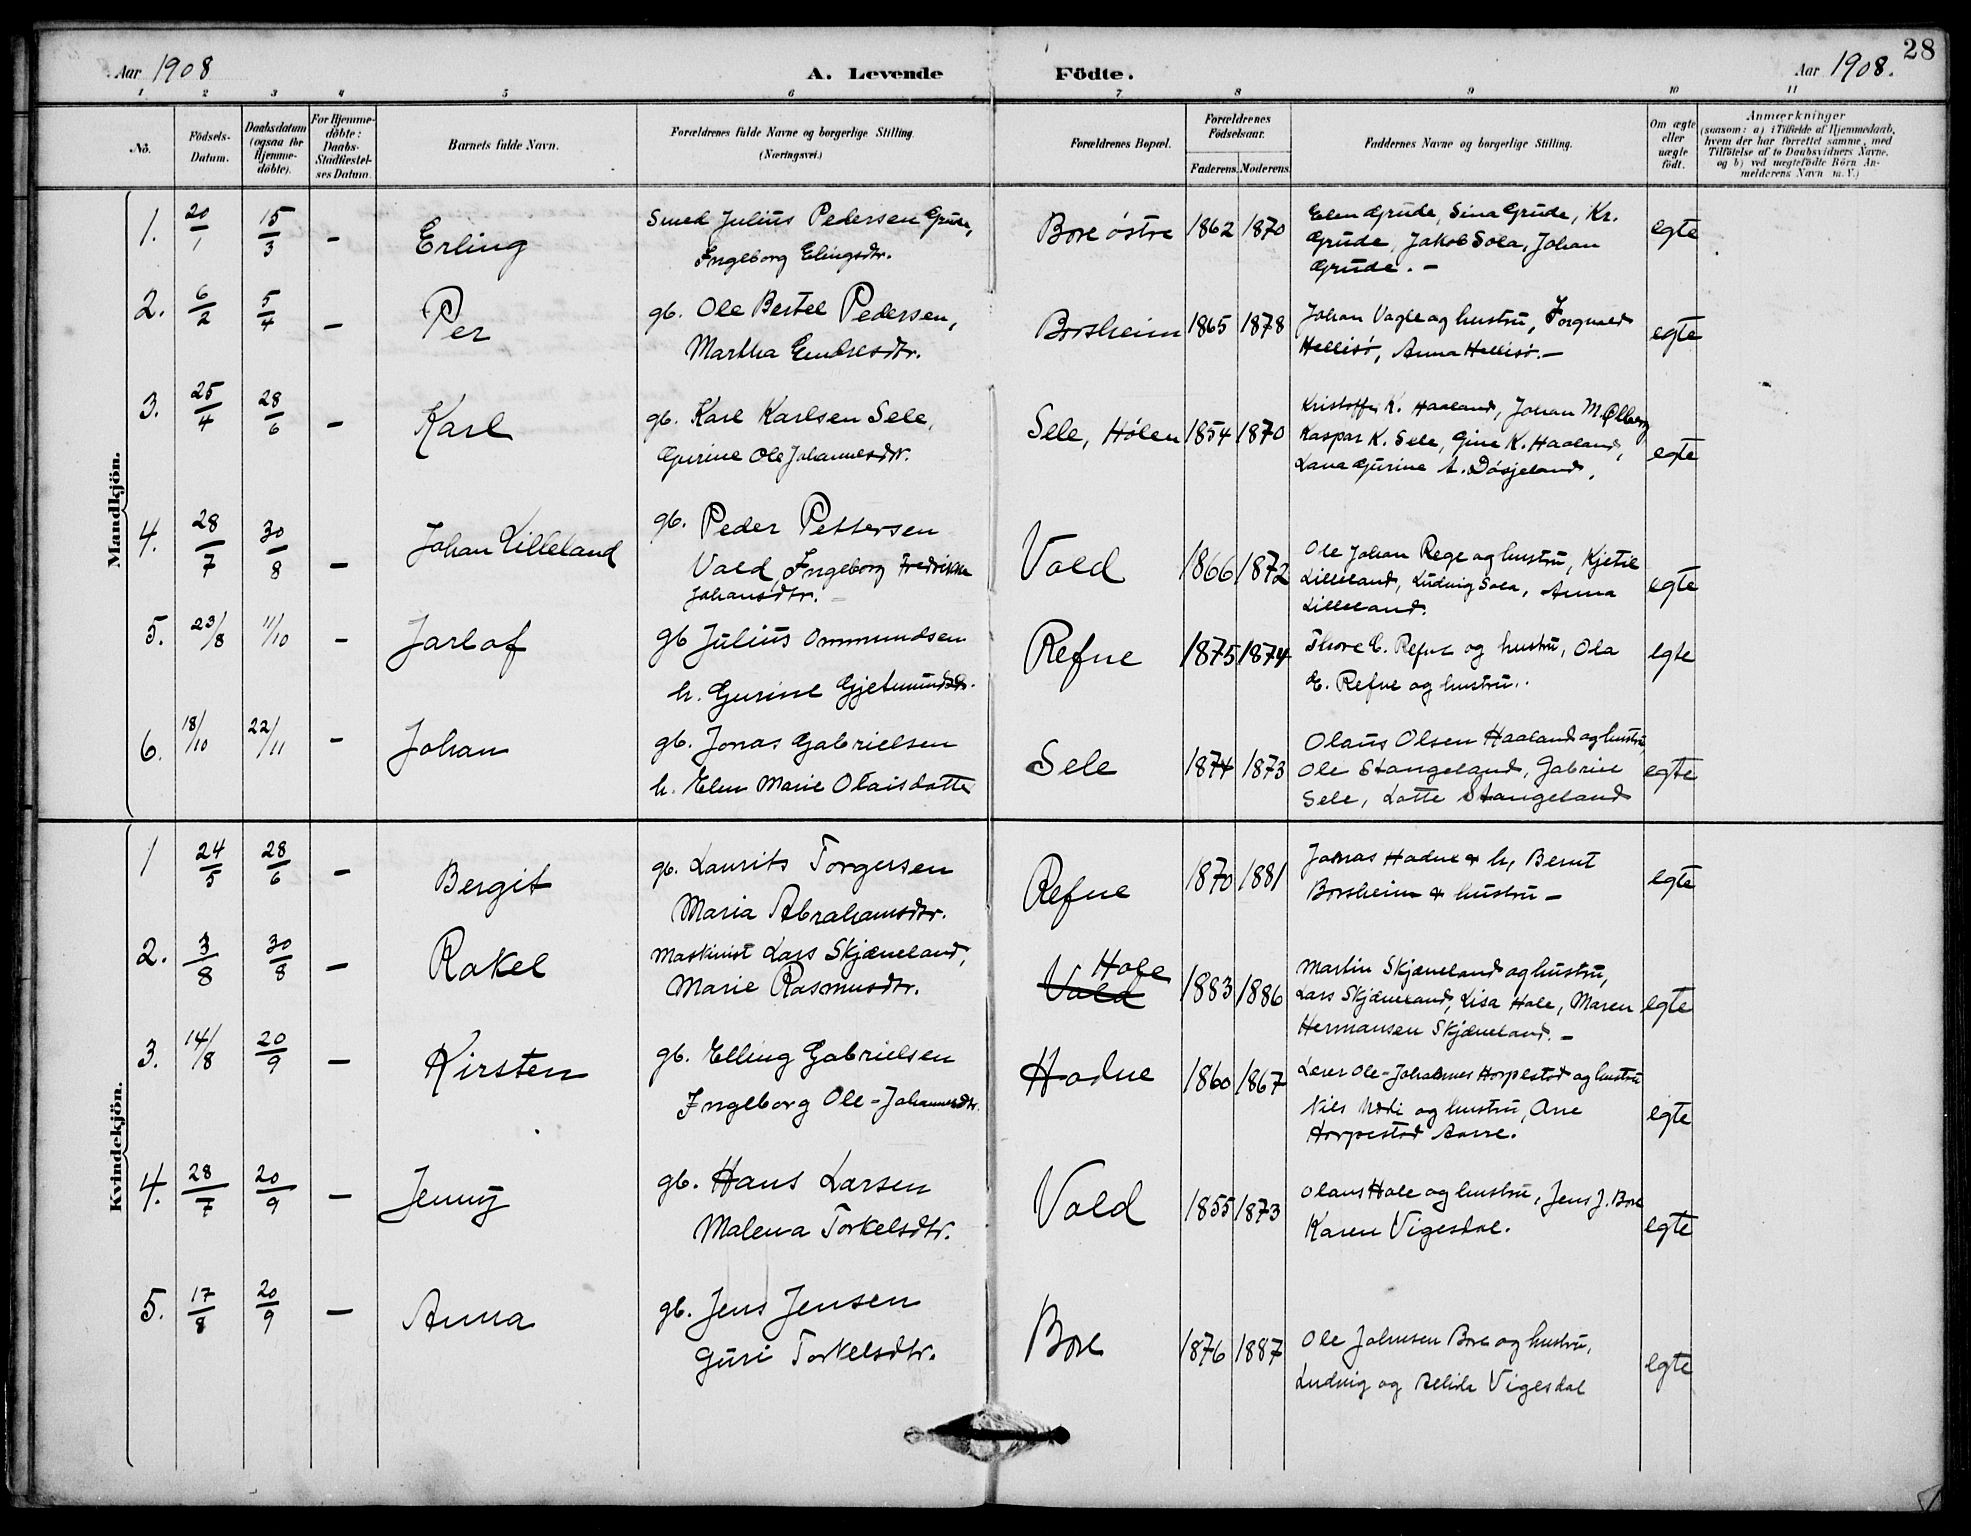 28
Aar 1908
A. Levende
Födte.
Aar 1908.
1
2
3
4
5
6
7
8
9
10
11
No.
Födsels-
Datum.
Daabsdatum
(ogsaa for
Hjemme-
döbte).
For Hjemme-
döbte:
Daabs-
Stadfæstel-
ses Datum.
Barnets fulde Navn.
Forældrenes fulde Navne og borgerlige Stilling.
(Næringsvei.)
Forældrenes Bopæl.
Forældrenes
Födselsaar.
Faderens.
Moderens.
Faddernes Navne og borgerlige Stilling.
Om ægte
eller
uægte
födt.
Anmærkninger
(saasom: a) i Tilfælde af Hjemmedaab,
hvem der har forrettet samme, med
Tilföielse af to Daabsvidners Navne,
og b) ved uægtefödte Börn An-
melderens Navn m. V.)
Mandkjön.
1. 20/1 15/3 - Erling
Smed Julius Pedersen Grude,
Ingeborg Elingsdtr.
Bore østre 1862 1870
Elen Grude, Sina Grude, Kr.
Grude, Jakob Sola, Johan
Grude. -
egte
2. 6/2 5/4 - Per
gb. Ole Bertel Pedersen,
Martha Endresdtr.
Borsheim 1865 1878
Johan Vagle og hustru, Torgvald
Hellisø, Anna Hellisø. -
egte
3. 25/4 28/6 - Karl
gb. Karl Karlsen Sele,
Gurine Ole Johannesdtr.
Sele, Hølen 1854 1870
Kristoffer K. Haaland, Johan M. Ølberg
Kaspar K. Sele, Gine K. Haaland,
Lava Gurine A. Døsjeland.
egte
4. 28/7 30/8 - Johan Lilleland
gb. Peder Pettersen
Vold, Ingeborg Fredrikke
Johansdtr.
Vold 1866 1872
Ole Johan Rege og hustru, Kjetil
Lilleland, Ludvig Sola, Anna
Lilleland.
egte
5. 23/8 11/10 - Jarlof
gb Julius Ommundsen
h. Gurine Gjetmundsdtr.
Refne 1875 1874
Thore E. Refne og hustru, Ola
E. Refne og hustru.
egte
6. 18/10 22/11 - Johan
gb. Jonas Gabrielsen
h. Elen Marie Olaisdatter
Sele 1874 1873
Olaus Olsen Haaland og hustru
Ole Stangeland, Gabriel
Sele, Lotte Stangeland
egte
Kvindekjön.
1 24/5 28/6 - Bergit
gb. Laurits Torgersen
Maria Abrahamsdtr.
Refne 1870 1881
Jonas Hodne & h, Bernt
Borsheim & hustru -
egte
2. 3/8 30/8 - Rakel
Maskinist Lars Skjæveland,
Marie Rasmusdtr.
Hole
Vold 1883 1886
Martin Skjæveland og hustru,
Lars Skjæveland, Lisa Hole, Maren
Hermansen Skjæveland. -
egte
3. 14/8 20/9 - Kirsten
gb. Elling Gabrielsen
Ingeborg Ole-Johannesdtr.
Hodne 1860 1867
Lærer Ole-Johannes Horpestad og hustru
Nils og hustru, Ane
Horpestad
egte
4. 28/7 20/9 - Jenny
gb. Hans Larsen
Malena Torkelsdtr.
Vold 1855 1873
Olaus Hole og hustru, Jens J. Bore
Karen Vigesdal.
egte
5. 17/8 20/9 - Anna
gb. Jens Jensen
Guri Torkelsdtr.
Bore 1876 1887
Ole Johnsen Bore og hustru,
Ludvig og Vigesdal
egte